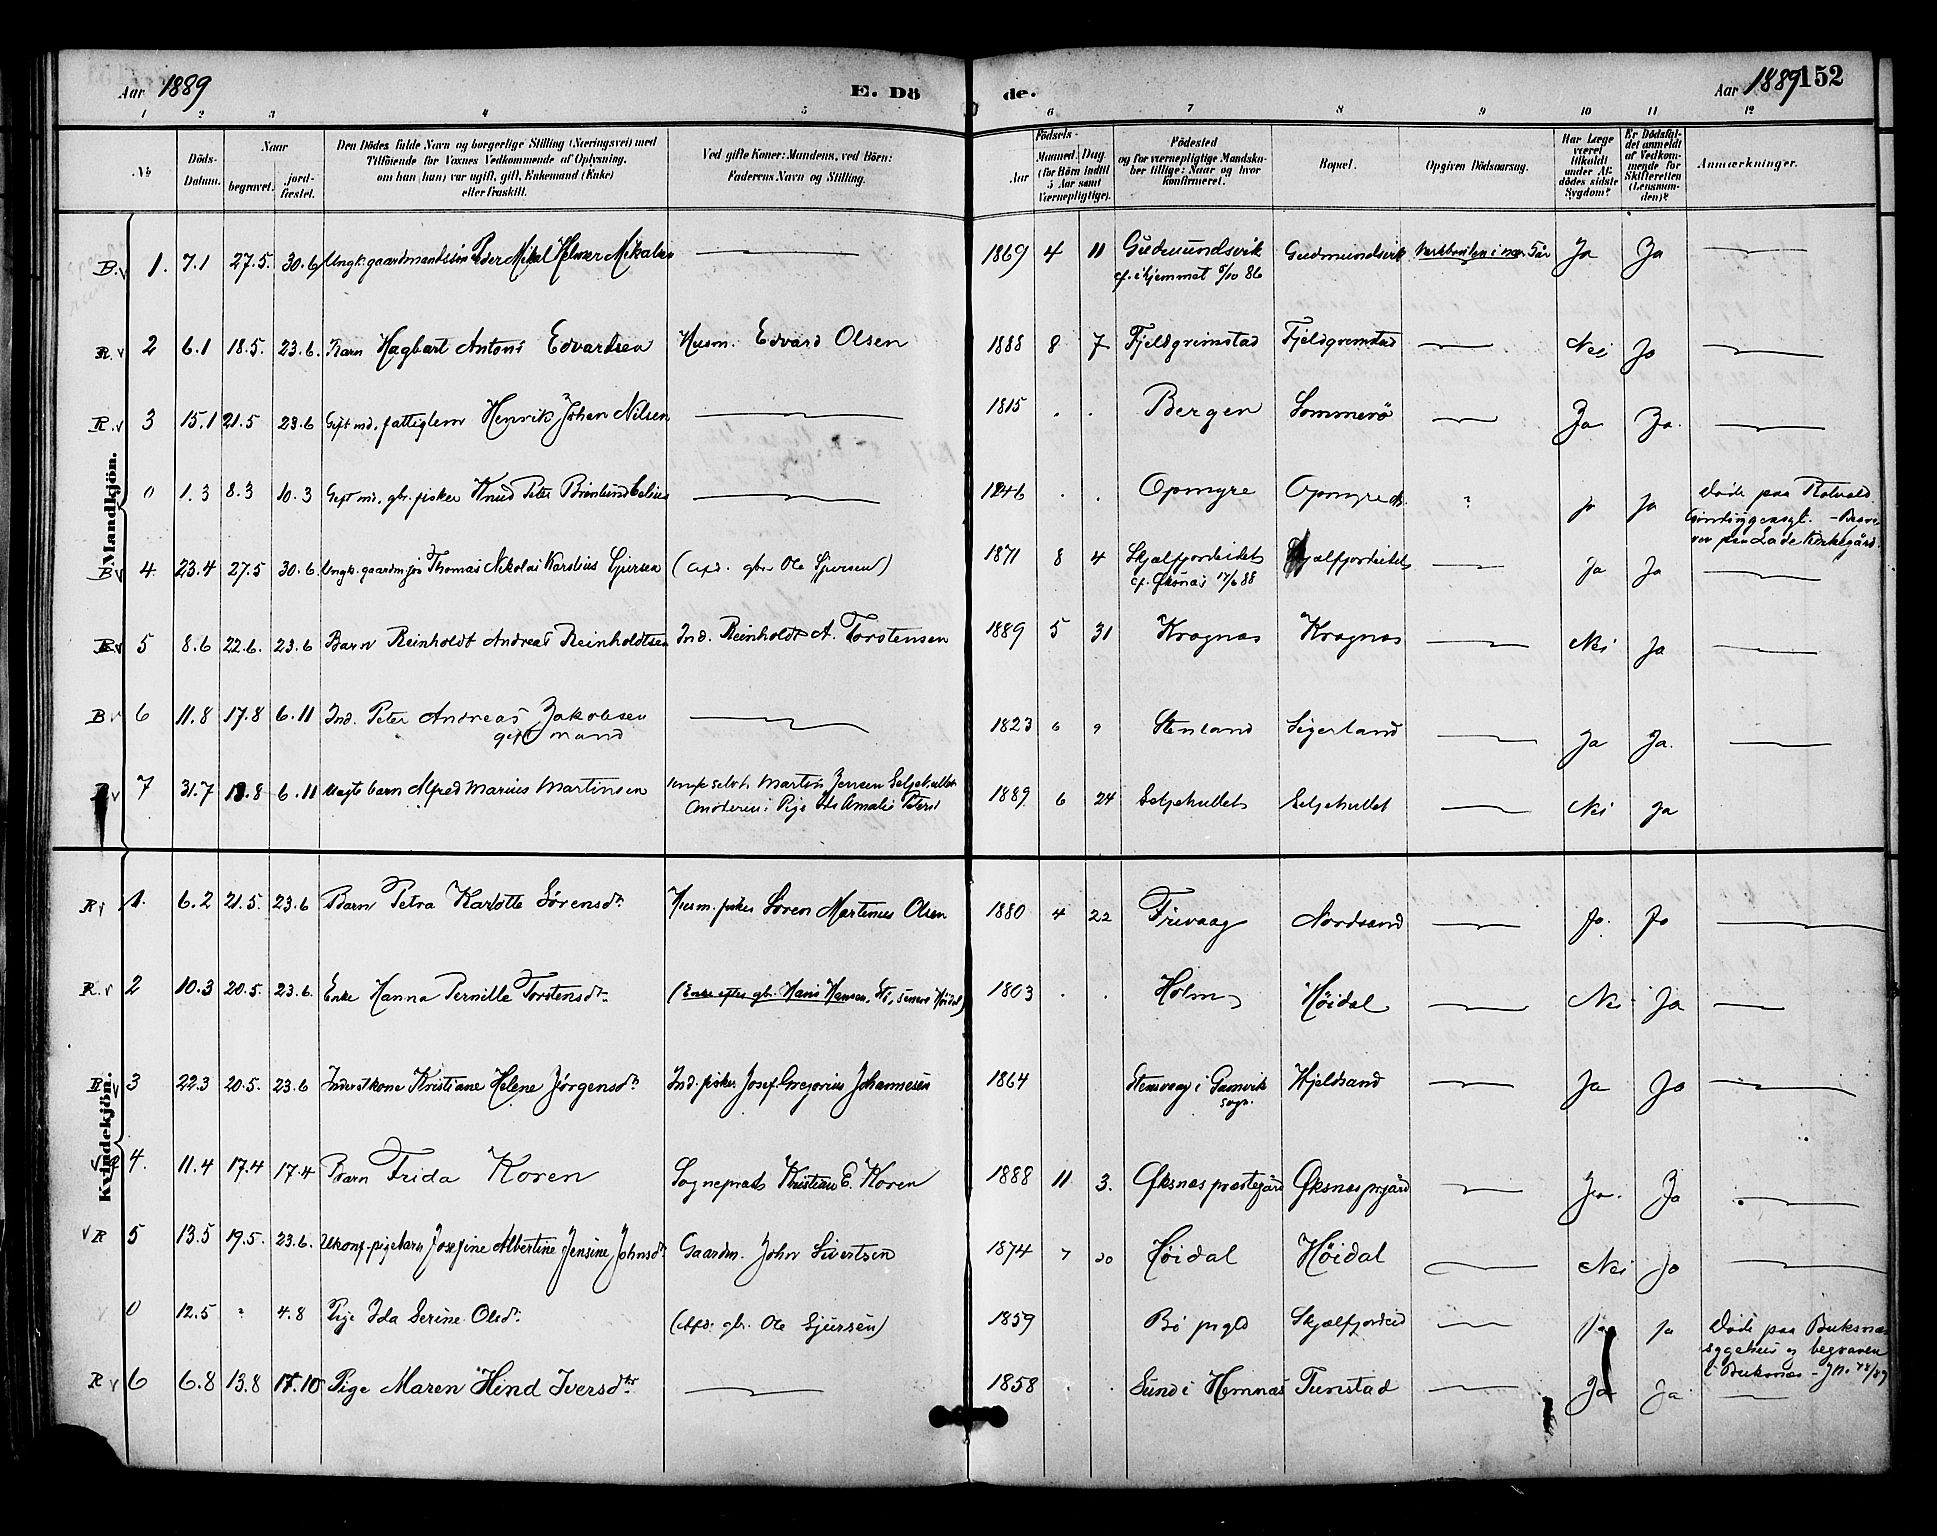 Aar 1889 E. Dö de. Aar 1889 152
1 2 3 4 5 6 7 8 9 10 11 12
No Döds-Datum. Naar begravet. jordfæstet. Den Dödes fulde Navn og borgerlige Stilling (Næringsvei) med Tilföiende for Voxnes Vedkommende af Oplysning, om han (hun) var ugift, gift, Enkemand (Enke) eller fraskilt. Ved gifte Koner: Mandens, ved Börn: Faderens Navn og Stilling. Födsels- Aar Maaned Dag (for Börn indtil 5 Aar samt Værnepligtige). Födested og for værnepligtige Mandskaber tillige: Naar og hvor konfirmeret. Bopæl. Opgiven Dödsaarsag. Har Læge været tilkaldt under Afdödes sidste Sygdom? Er Dödsfaldet anmeldt af Vedkommende for Skifteretten (Lensmanden)? Anmærkninger.
Mandkjön.
B. 1. 7.1 27.5. 30.6 Ungk. gaardmandssön Peder Mikal Helmer Mikalsen 1869 4 11 Gudmundsvik Gudmundsvik Ja Ja
cf. i hjemmet 5/10 86
R. 2 6.1 18.5. 23.6. Barn Hagbart Antoni Edvardsen Husm. Edvard Olsen 1888 8 7 Fjeldgrimstad Fjeldgrimstad Nei Ja
R. 3 15.1 21.5 23.6 Gift md. fattiglem Henrik Johan Nilsen 1815 . . Bergen Sommerö Ja Ja.
0 1.3 8.3 10.3 Gift md. gbr. fisker Knud Peter 1846 . . Opmyre Opmyre ? Ja Ja Döde paa Rotvold
Sindsygeasyl. - Begra-
ven paa Lade Kirkegård.
B 4. 23.4 27.5 30.6 Ungk. gaardm. sön Thomas Nikolai Karelius Sjursen (Afd. gbr. Ole Sjursen) 1871 8 4 Skjælfjordeidet Skjælfjordeidet Ja Ja
cf. Øksnæs 17/6 88
R 5 8.6 22.6. 23.6 Barn Reinholdt Andreas Reinholdtsen Ind. Reinholdt A. Torstensen 1889 5 31 Kragnæs Kragnæs Nei Ja
B 6 11.8 17.8 6.11 Ind. Peter Andreas Jakobsen 1823 6 9 Stenland Sigerland Ja Ja.
gift mand
R 7 31.7 18.8 6.11 Uægte barn Alfred Marius Martinsen Ungk. Martin Jensen Seljehullet 1889 6 24 Seljehullet Seljehullet Nei Ja
Moderen: Pige Amalie Petersd
Kvindekjön.
R 1. 6.2 21.5. 23.6 Barn Petra Karlotte Sörensdtr. Husm. fisker Sören Martinus Olsen 1880 4 22 Frivaag Nordsand Ja. Ja
R. 2 10.3 20.5. 23.6. Enke Hanna Pernille Torstensdtr. (Enke efter gbr. Hans Hansen, Höidal) 1803 . . Holm Höidal Nei Ja
R 3 22.3 20.5. 23.6 Inderstkone Kristiane Helene Jörgensdtr. Ind. fisker Josef Gregorius Johannesen 1864 Stensvaag i Gamvik Hjeldsand Ja Ja
sogn.
4. 11.4 17.4 17.4 Barn Frida Koren Sognepræst Kristian E. Koren 1888 11 3. Øksnæs præstegård Øksnæs prgård Ja. Ja
R 5 13.5 19.5. 23.6. Ukonf. pigebarn Josefine Albertine Jensine Johnsdtr. Gaardm. John Sivertsen 1874 7 20 Höidal Höidal Nei Ja
0 12.5 ? 4.8 Pige Ida Serine Olsdtr. (Afd. gbr. Ole Sjursen) 1859 Bö prgld Skjælfjordeid Ja Ja Döde paa Buksnæs
sygehus og begraven
i Buksnæs
R 6 6.8 13.8 17.10 Pige Maren Hind Iversdtr. 1858 . . Sund i Hemnæs Tunstad Ja Ja